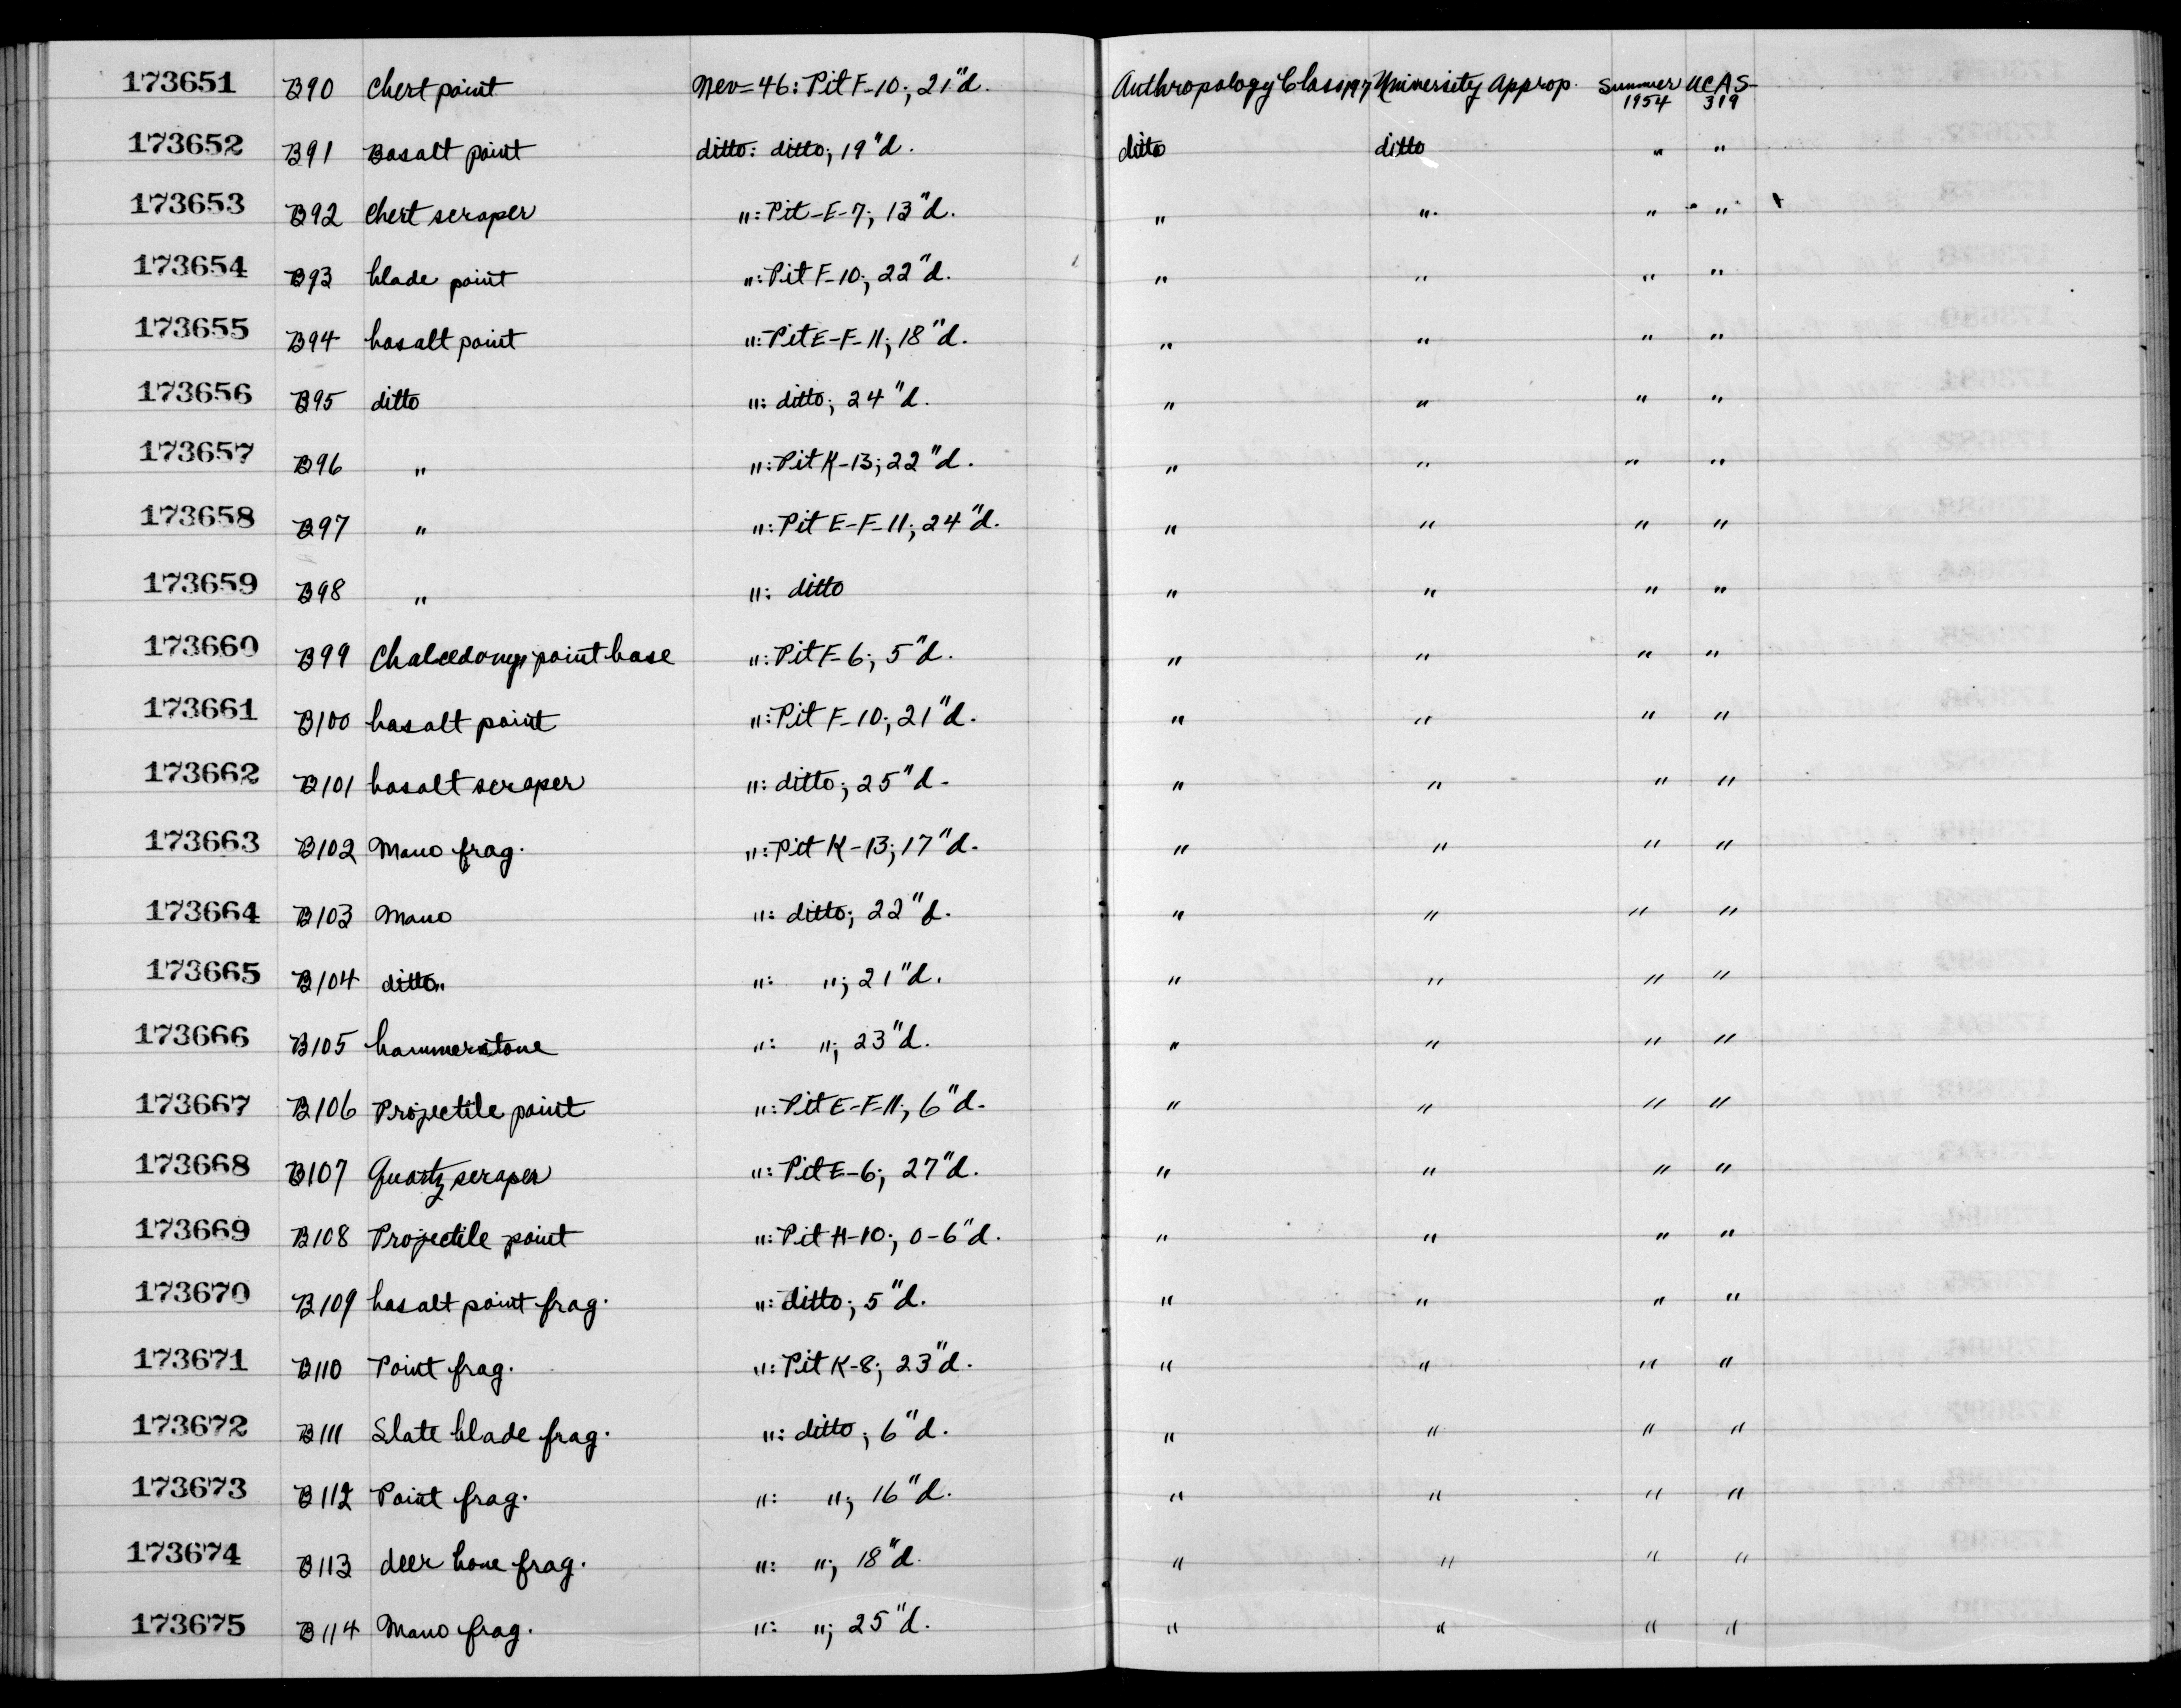 173651 B90 Chert point Nev=46: Pit F-10; 21"d. Anthropology Class 197 University Approp. Summer 1954 UCAS-319
173652 B91 Basalt point ditto: ditto; 19"d. ditto ditto " "
173653 B92 Chert scraper ": Pit-E-7; 13"d. " " " "
173654 B93 blade point ": Pit F-10; 22"d. " " " "
173655 B94 basalt point ": Pit E-F-11; 18"d. " " " "
173656 B95 ditto ": ditto; 24"d. " " " "
173657 B96 " ": Pit K-13; 22"d. " " " "
173658 B97 " ": Pit E-F-11; 24"d. " " " "
173659 B98 " ": ditto " " " "
173660 B99 Chalcedony point base ": Pit F-6; 5"d. " " " "
173661 B100 basalt point ": Pit F-10; 21"d. " " " "
173662 B101 basalt scraper ": ditto; 25"d. " " " "
173663 B102 Mano frag. ": Pit K-13; 17"d. " " " "
173664 B103 Mano ": ditto; 22"d. " " " "
173665 B104 ditto ": "; 21"d. " " " "
173666 B105 hammerstone ": "; 23"d. " " " "
173667 B106 Projectile point ": Pit E-F-11; 6"d. " " " "
173668 B107 Quartz scraper ": Pit E-6; 27"d. " " " "
173669 B108 Projectile point ": Pit H-10; 0-6"d. " " " "
173670 B109 basalt point frag. ": ditto; 5"d. " " " "
173671 B110 Point frag. ": Pit K-8; 23"d. " " " "
173672 B111 Slate blade frag. ": ditto; 6"d. " " " "
173673 B112 Point frag. ": "; 16"d. " " " "
173674 B113 deer bone frag. ": "; 18"d. " " " "
173675 B114 Mano frag. ": "; 25"d. " " " "